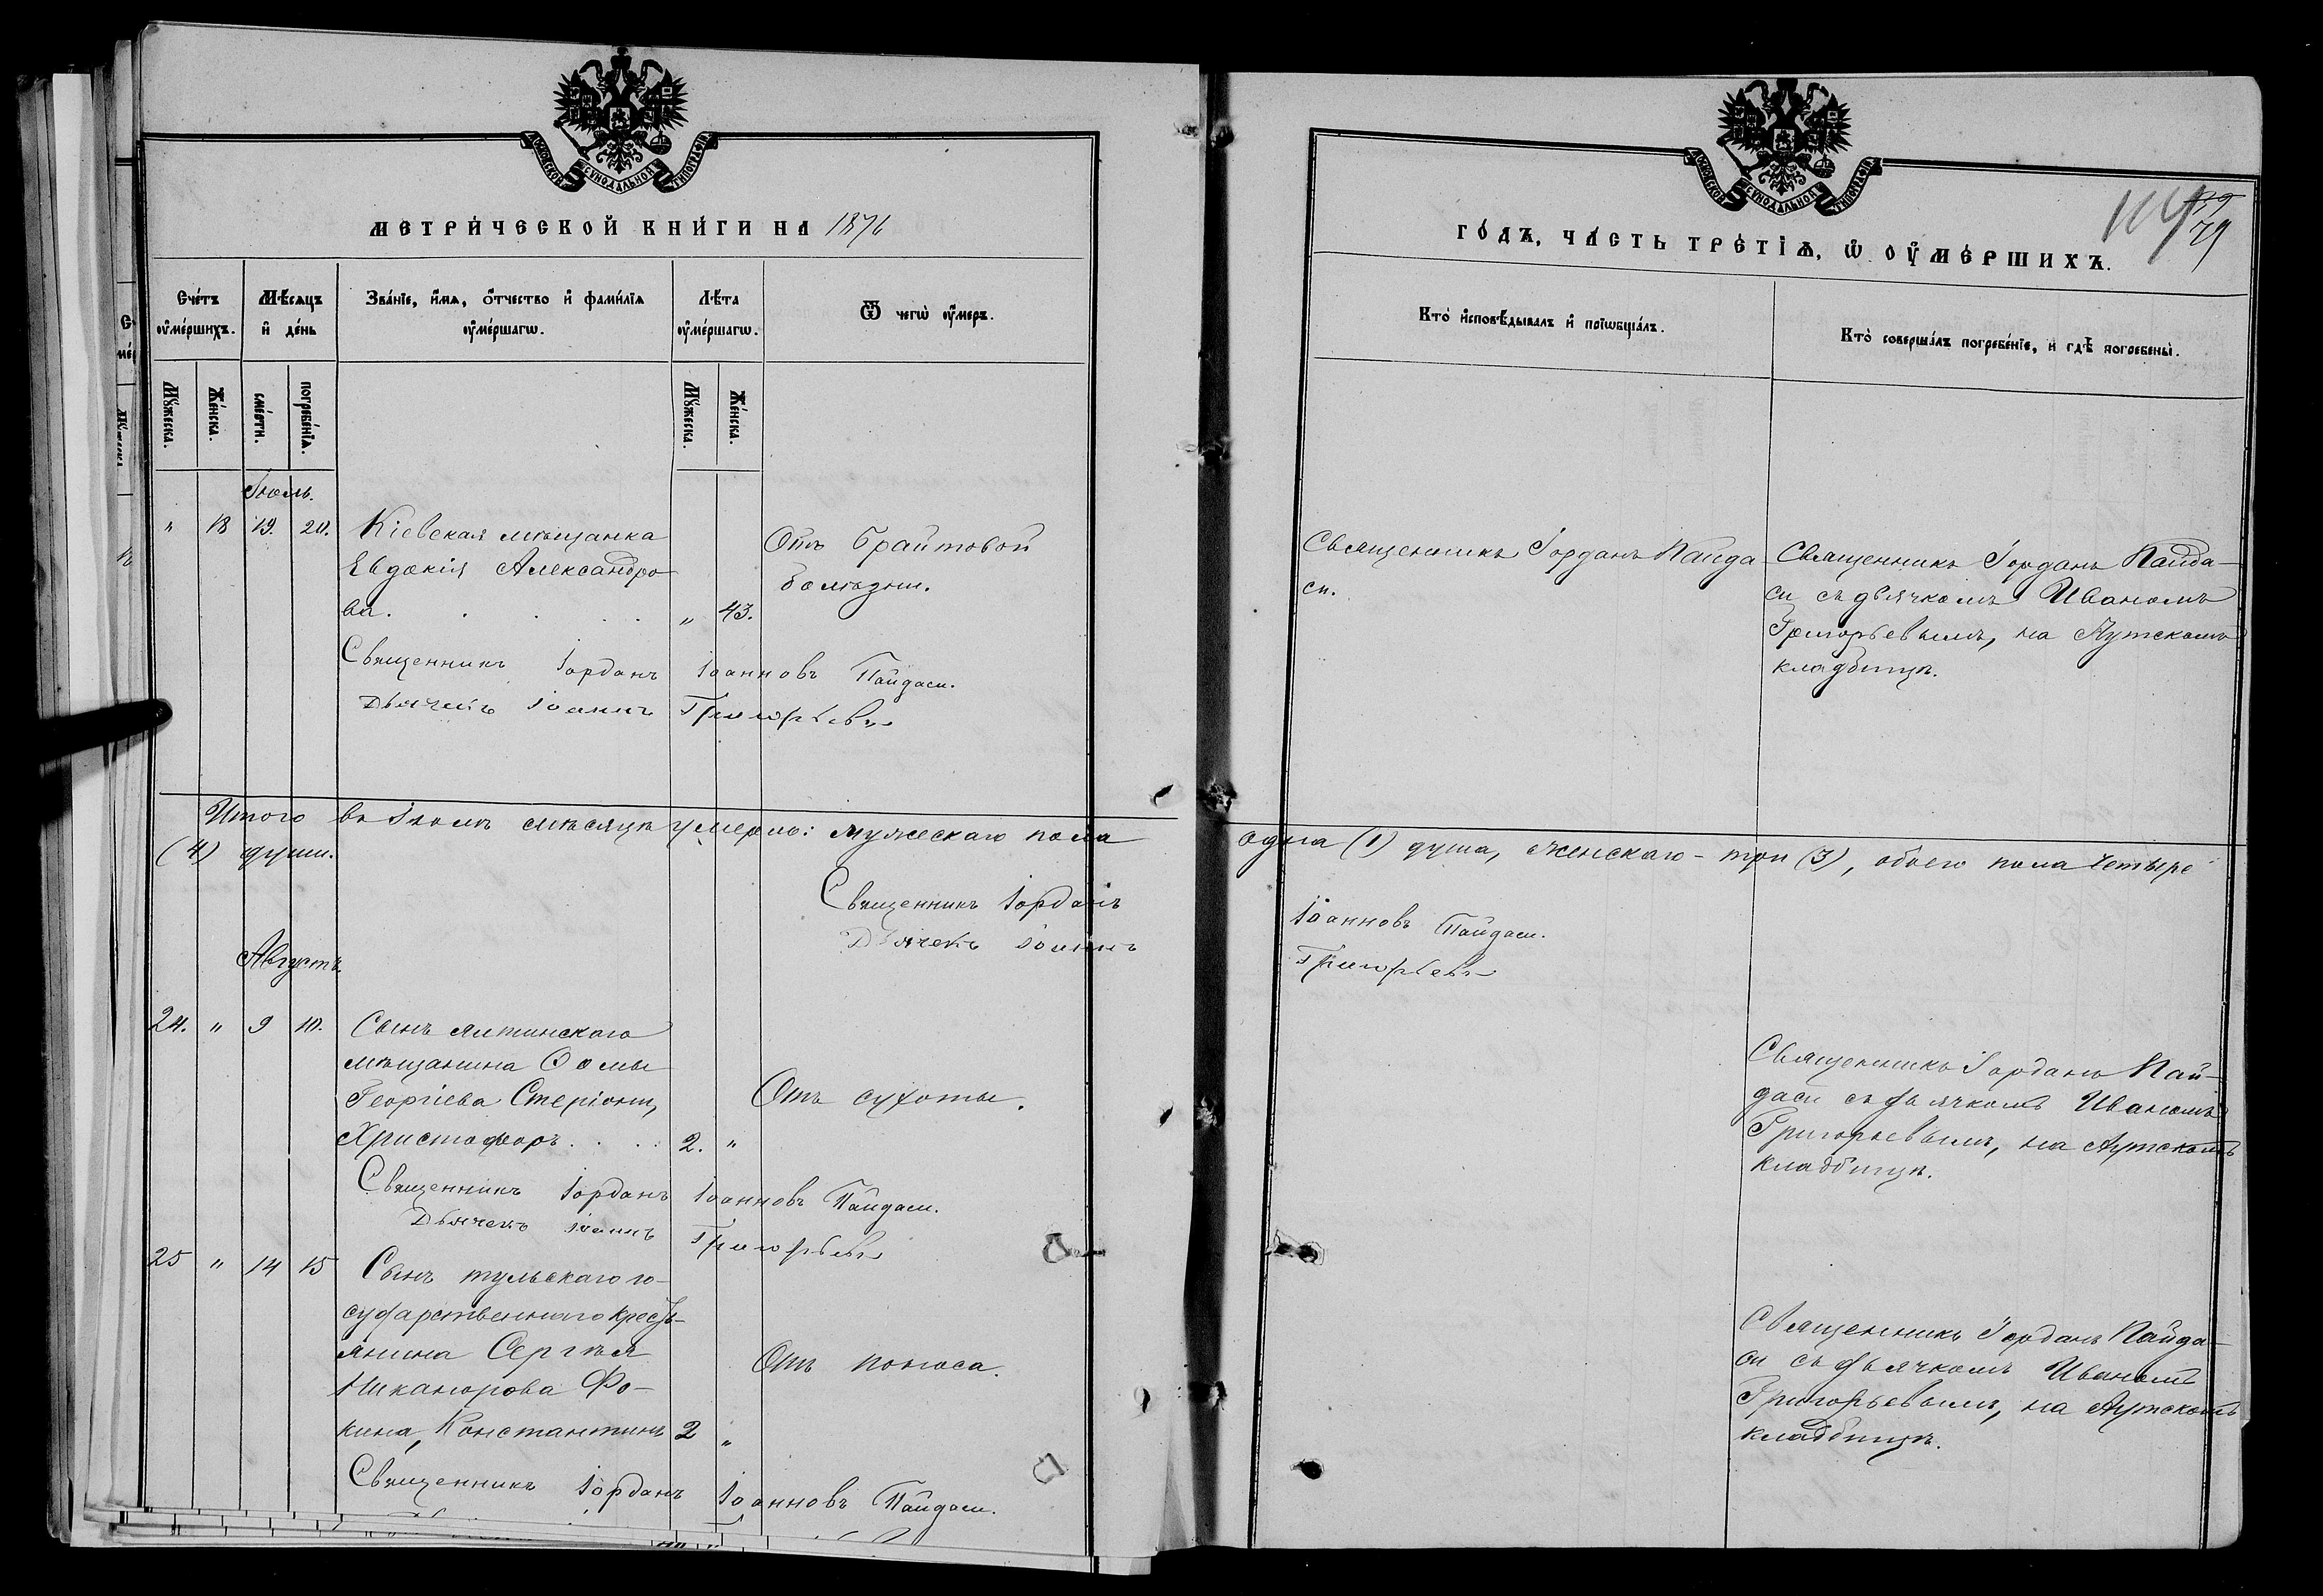 МОСКОВСКОЙ СѴНОДАЛЬНОЙ ТИПОГРАФІИ
МЕТРИ́ЧЕСКОЙ КНИ́ГИ НА 1876
Сче́тъ ᲂу҆ме́ршихъ.
Мѣ́сяцъ и҆ де́нь
Зва́нїе, и҆́мѧ, ѻ҆́тчество и҆ фамилїѧ ᲂу҆ме́ршагѡ.
Лѣ́та ᲂу҆ме́ршагѡ.
Ѿ чегѡ̀ ᲂу҆́меръ.
Мꙋ́жеска.
Же́нска.
сме́рти.
погребе́нїѧ.
Мꙋ́жеска.
Же́нска.
Іюль.
" 18 19. 20. Кіевская мѣщанка
Евдокія Александро-
ва. . . . . " 43.
Отъ брайтовой
болѣзни.
Священникъ Іорданъ Іоанновъ Пайдаси.
Дьячекъ Іоаннъ Григорьевъ
Итого въ Іюлѣ мѣсяцѣ умерло: мужескаго пола
(4) души.
Священникъ Іорданъ
Дьячекъ Іоаннъ
Августъ.
24. " 9 10. Сынъ ялтинскаго
мѣщанина Ѳомы
Георгіева Стеріони,
Христофоръ . . . . 2. "
Отъ сухоты.
Священникъ Іорданъ Іоанновъ Пайдаси.
Дьячекъ Іоаннъ Григорьевъ
25 " 14 15 Сынъ тульскаго го-
сударственнаго кресть-
янина Сергѣя
Никанорова Фо-
кина, Константинъ 2 "
Отъ поноса.
Священникъ Іорданъ Іоанновъ Пайдаси.
МОСКОВСКОЙ СѴНОДАЛЬНОЙ ТИПОГРАФІИ
79
ГО́ДЪ, ЧА́СТЬ ТРЕ́ТЇѦ, Ѡ҆ ОУ҆МЕ́РШИХЪ.
Кто̀ и҆сповѣ́дывалъ и҆ прїѡбща́лъ.
Кто̀ соверша́лъ погребе́нїе, и҆ гдѣ̀ погребены̀.
Священникъ Іорданъ Пайда-
си.
Священникъ Іорданъ Пайда-
си съ дьячкомъ Иваномъ
Григорьевымъ, на Аутскомъ
кладбищѣ.
одна (1) душа, женскаго - три (3), обоего пола четыре
Іоанновъ Пайдаси.
Григорьевъ
Священникъ Іорданъ Пай-
даси съ дьячкомъ Иваномъ
Григорьевымъ, на Аутскомъ
кладбищѣ.
Священникъ Іорданъ Пайда-
си съ дьячкомъ Иваномъ
Григорьевымъ, на Аутскомъ
кладбищѣ.